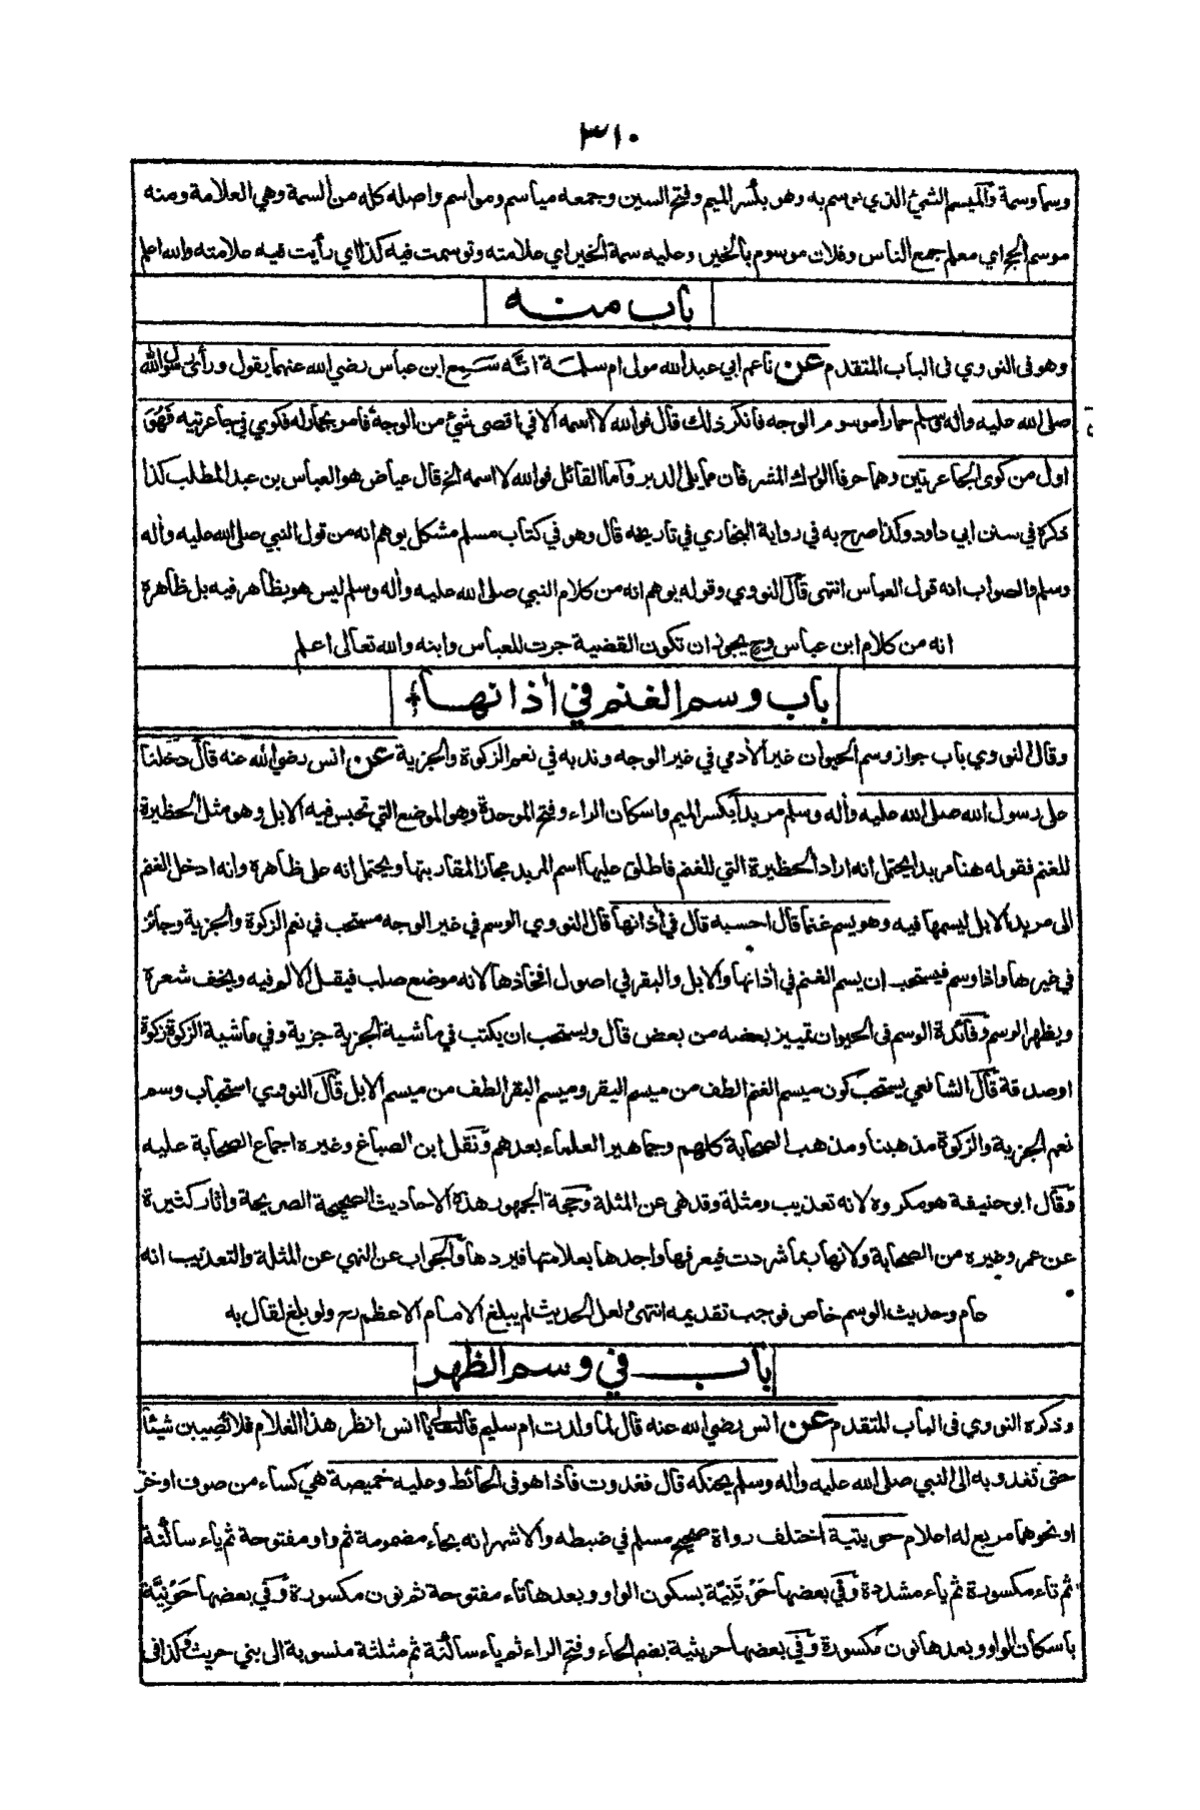 ٣١٠
وسما وسمة والميسم الشيء الذي يوسم به وهو بكسر الميم وفتح السين وجمعه مياسم ومواسم واصله كله من السمة وهي العلامة ومنه
موسم الحج اي معلم جمع الناس وفلان موسوم بالخير وعليه سمة الخير اي علامته وتوسمت فيه كذا اي رأيت فيه علامته والله اعلم
باب منه
وهو في النووي في الباب المتقدم عن ناعم ابي عبد الله مولى ام سلمة انه سمع ابن عباس رضي الله عنهما يقول ورأى رسول الله
صلى الله عليه وأله وسلم حمارا موسوم الوجه فانكر ذلك قال فوالله لا اسمه الا في اقصى شئ من الوجه فامر بحمار له فكوي في جاعرتيه فهو
اول من كوى الجاعرتين وهما حرفا الورك المشرفان مما يلي الدبر وأما القائل فوالله لا اسمه الخ قال عياض هو العباس بن عبد المطلب كذا
ذكره في سنن ابي داود وكذا صرح به في رواية البخاري في تاريخه قال وهو في كتاب مسلم مشكل يوهم انه من قول النبي صلى الله عليه وأله
وسلم والصواب انه قول العباس انتهى قال النووي وقوله يوهم انه من كلام النبي صلى الله عليه وأله وسلم ليس هو بظاهر فيه بل ظاهره
انه من كلام ابن عباس وح يجوز ان تكون القضية جرت للعباس وابنه والله تعالى اعلم
باب وسم الغنم في أذانها
وقال النووي باب جواز وسم الحيوان غير الأدمي في غير الوجه وندبه في نعم الزكوة والجزية عن انس رضي الله عنه قال دخلنا
على رسول الله صلى الله عليه وأله وسلم مربدا بكسر الميم واسكان الراء وفتح الموحدة وهو الموضع التي تحبس فيه الابل وهو مثل الحظيرة
للغنم فقوله هنا مربدا يحتمل انه اراد الحظيرة التي للغنم فاطلق عليها اسم المربد مجازا لمقاربتها ويحتمل انه على ظاهره وانه ادخل الغنم
الى مربد الابل ليسمها فيه وهو يسم غنما قال احسبه قال في أذانها قال النووي الوسم في غير الوجه مستحب في نعم الزكوة والجزية وجائز
في غيرها واذا وسم فيستحب ان يسم الغنم في أذانها والابل والبقر في اصول افخاذها لانه موضع صلب فيقل الالم فيه ويخف شعره
ويظهر الوسم وفائدة الوسم في الحيوان تمييز بعضه من بعض قال ويستحب ان يكتب في ماشية الجزية جزية وفي ماشية الزكوة زكوة
او صدقة قال الشافعي يستحب كون ميسم الغنم الطف من ميسم البقر وميسم البقر الطف من ميسم الابل قال النووي استحباب وسم
نعم الجزية والزكوة مذهبنا ومذهب الصحابة كلهم وجماهير العلماء بعدهم ونقل ابن الصباغ وغيره اجماع الصحابة عليه
وقال ابو حنيفة هو مكروه لانه تعذيب ومثلة وقد نهى عن المثلة وحجة الجمهور هذه الاحاديث الصحيحة الصريحة وأثار كثيرة
عن عمر وغيره من الصحابة ولانها ربما شردت فيعرفها واجدها بعلامتها فيردها والجواب عن النهي عن المثلة والتعذيب انه
عام وحديث الوسم خاص فوجب تقديمه انتهى ولعل الحديث لم يبلغ الامام الاعظم رح ولو بلغ لقال به
باب في وسم الظهر
وذكره النووي في الباب المتقدم عن انس رضي الله عنه قال لما ولدت ام سليم قالت لي يا انس انظر هذا الغلام فلا تصيبن شيئا
حتى تغدو به الى النبي صلى الله عليه وأله وسلم يحنكه قال فغدوت فاذا هو في الحائط وعليه خميصة هي كساء من صوف او خز
او نحوهما مربع له اعلام حويتية اختلف رواة صحيح مسلم في ضبطه والاشهر انه بحاء مضمومة ثم واو مفتوحة ثم ياء ساكنة
ثم تاء مكسورة ثم ياء مشددة وفي بعضها حوتنية بسكون الواو وبعدها تاء مفتوحة ثم نون مكسورة وفي بعضها حونية
باسكان الواو وبعدها نون مكسورة وفي بعضها حريثية بضم الحاء وفتح الراء ثم ياء ساكنة ثم مثلثة منسوبة الى بني حريث وكذا في